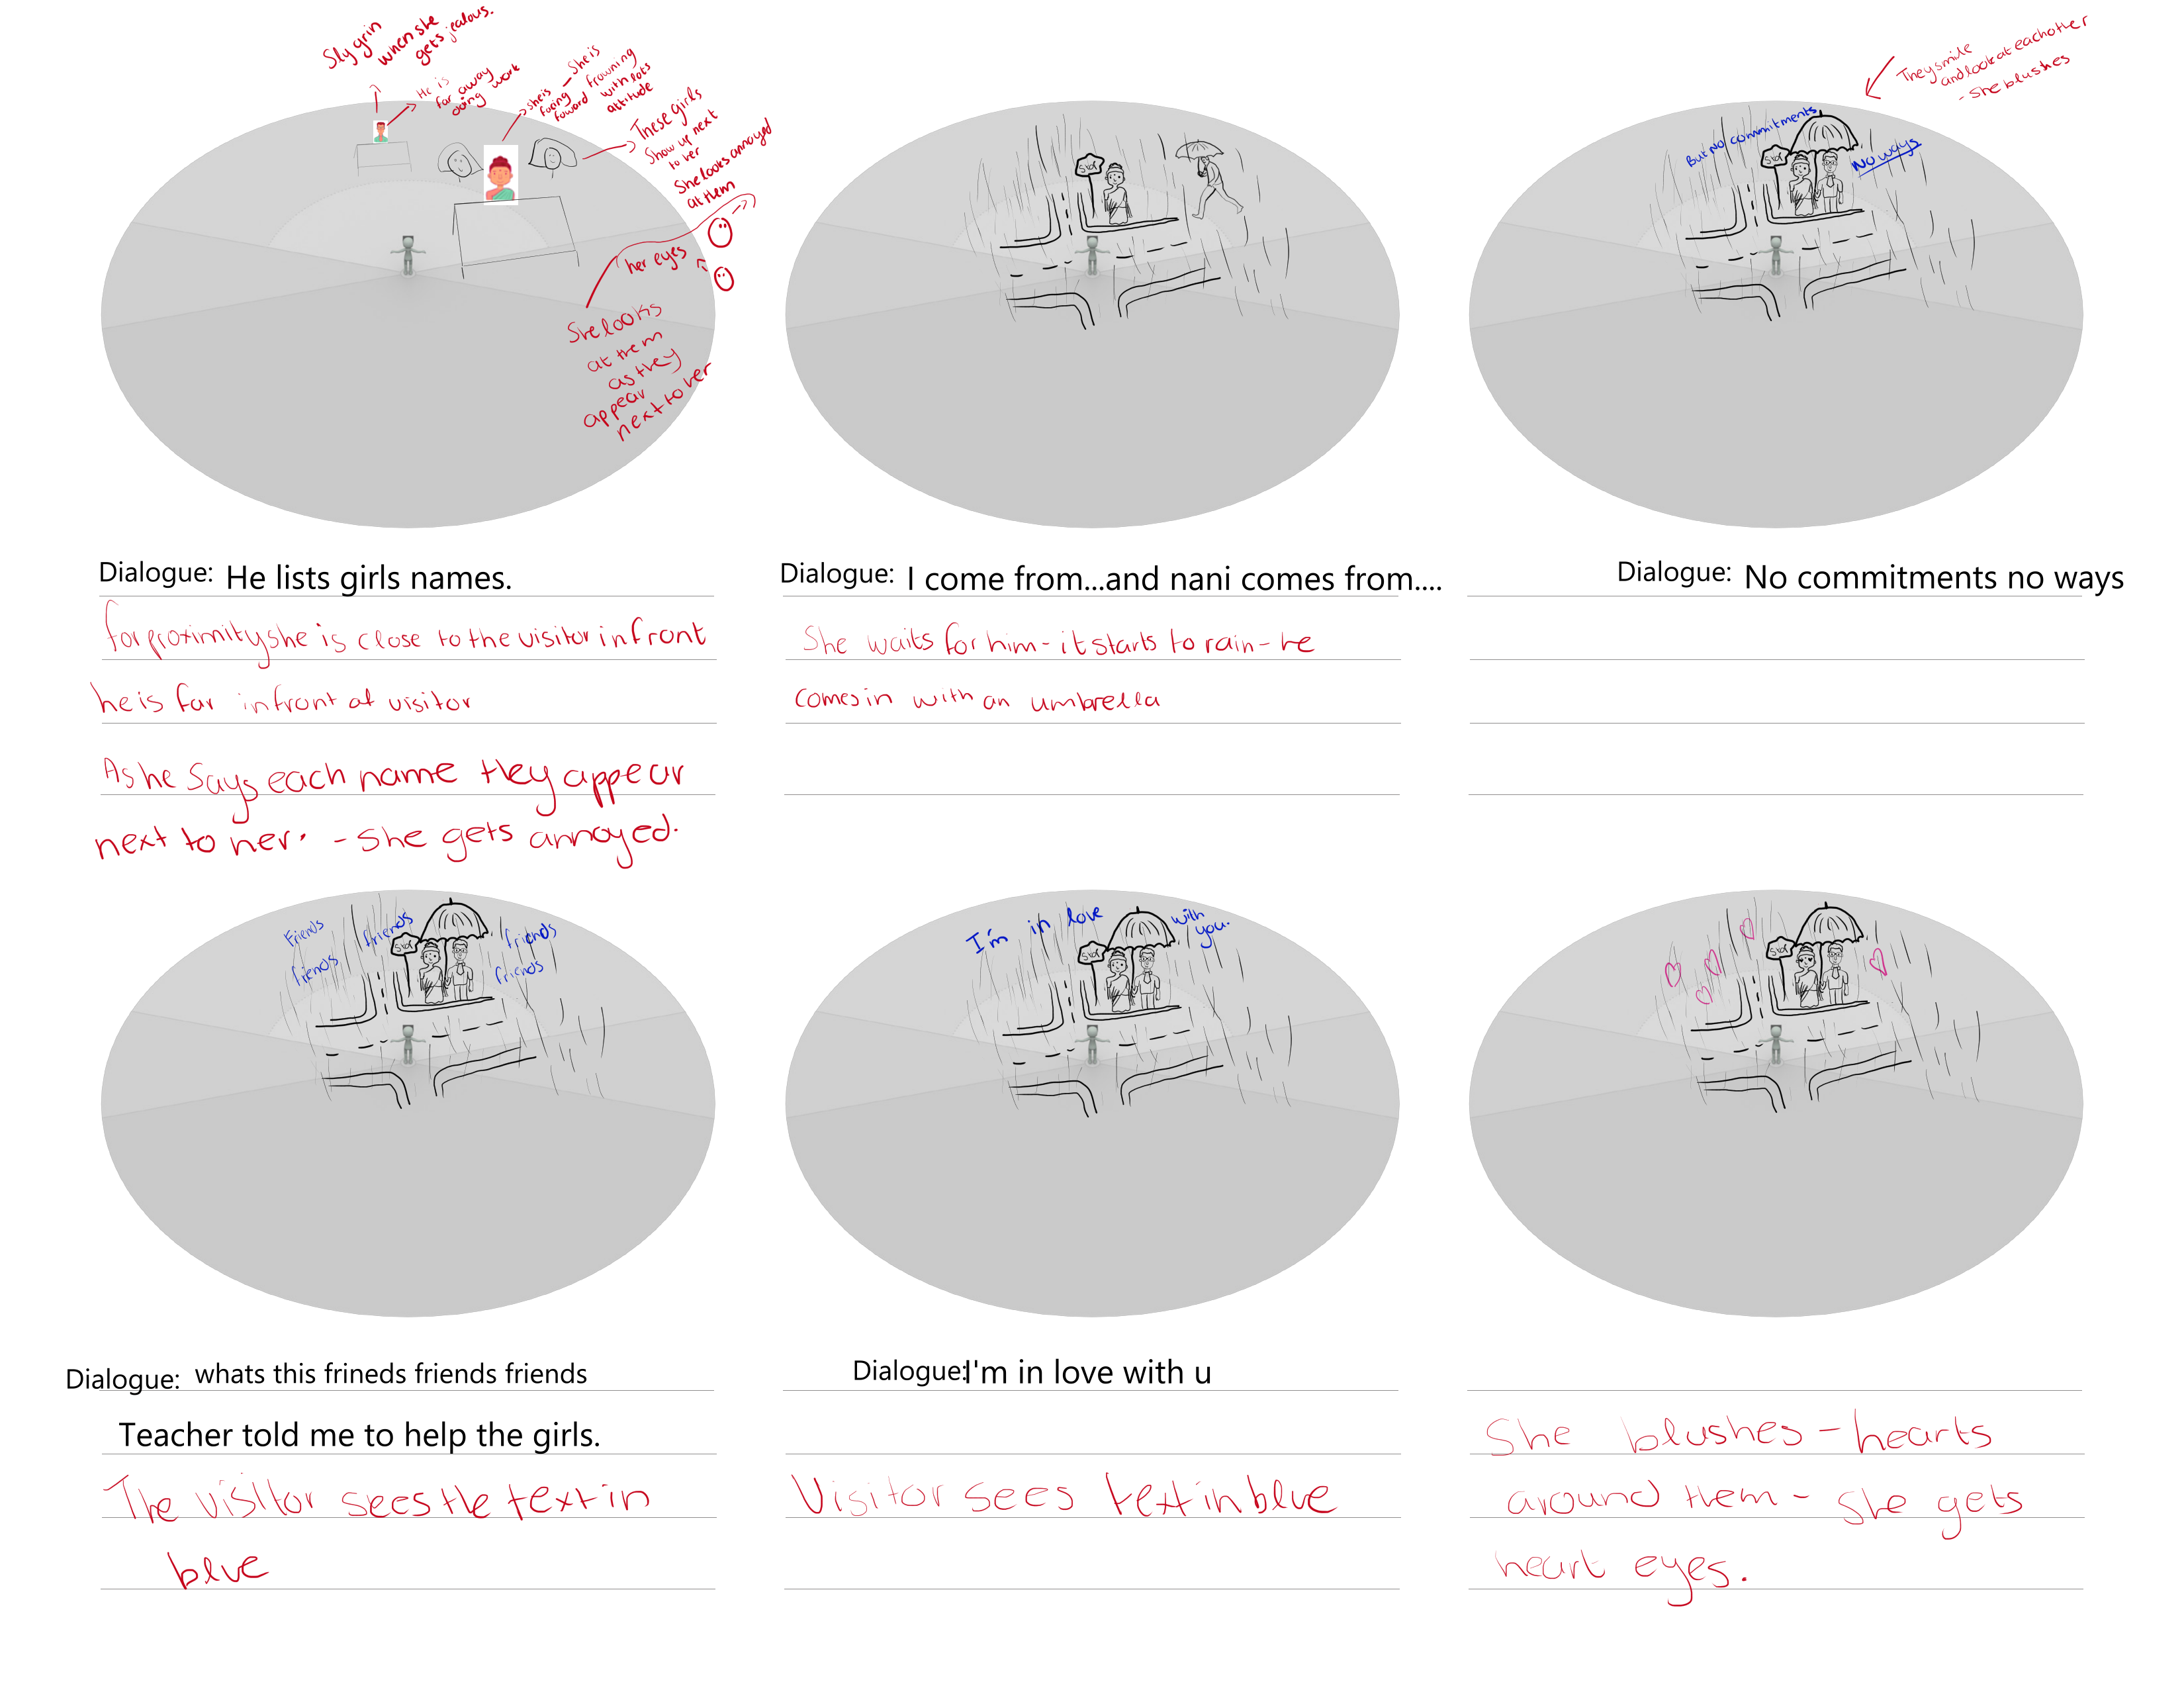 Sly grin
when she
gets jealous.
He is
far away
doing work
she is
facing
foward
- She is
frowning
with lots
attitude
These girls
Show up next
to her
She looks annoyed
at them
her eyes
She looks
at them
as they
appear
next to her
Dialogue: He lists girls names.
for proximity she is close to the visitor in front
he is far infront of visitor
As he says each name they appear
next to her. - She gets annoyed.
Stop
Dialogue: I come from...and nani comes from....
She waits for him - it starts to rain - he
comes in with an umbrella
They smile
and look at each other
- She blushes
But No commitments
No ways
Stop
Dialogue: No commitments no ways
Friends
friends
friends
friends
friends
Stop
Dialogue: whats this frineds friends friends
Teacher told me to help the girls.
The visitor sees the text in
blue
I'm in love with
you.
Stop
Dialogue:I'm in love with u
Visitor sees text in blue
Stop
She blushes - hearts
around them - she gets
heart eyes.